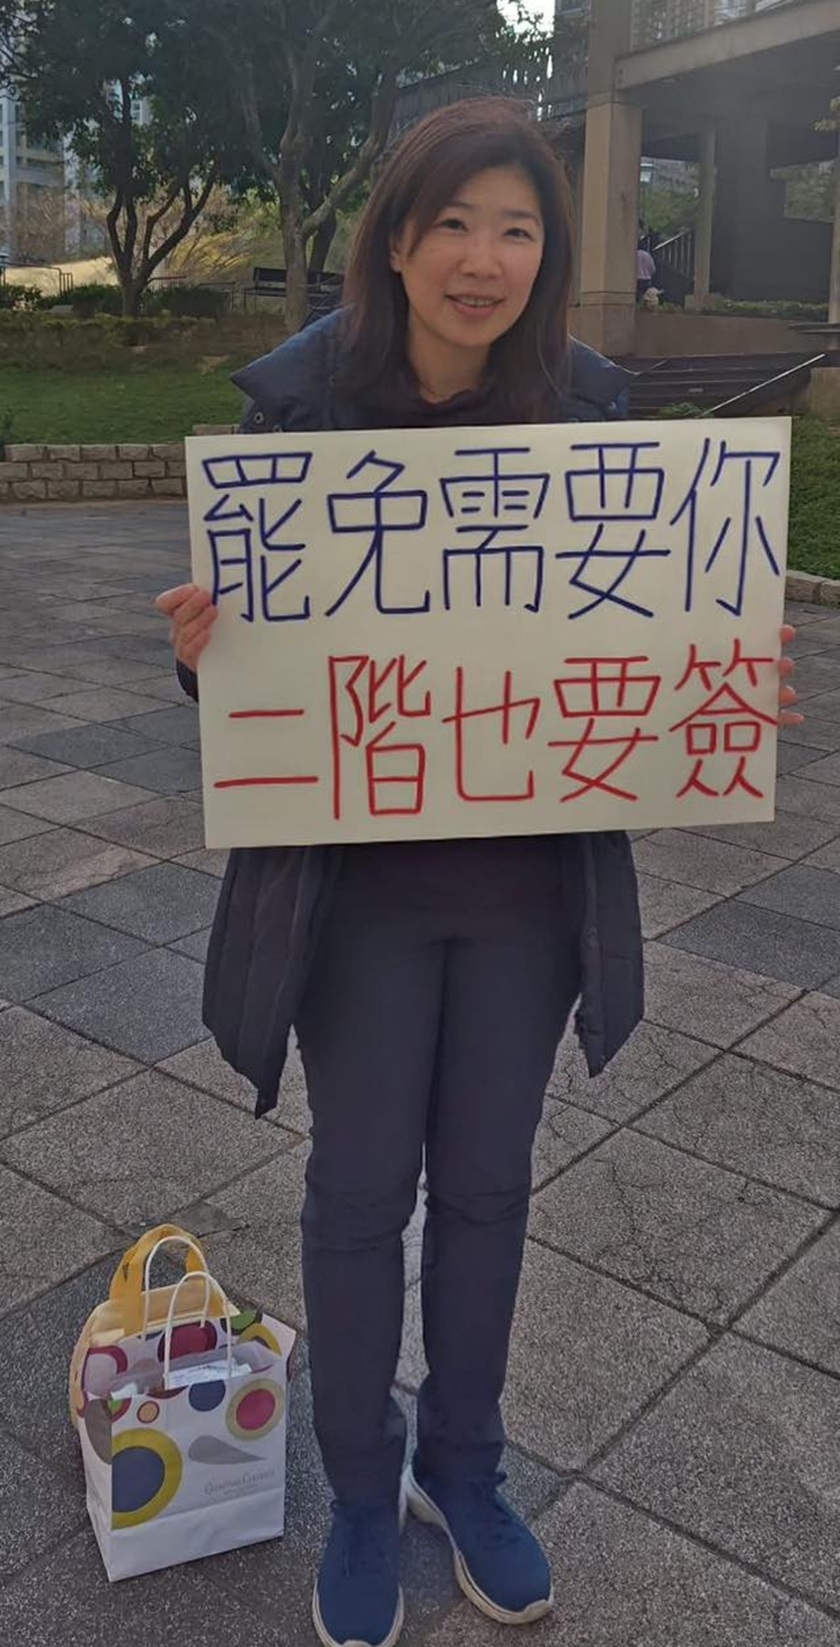 罷免需要你
二階也要簽